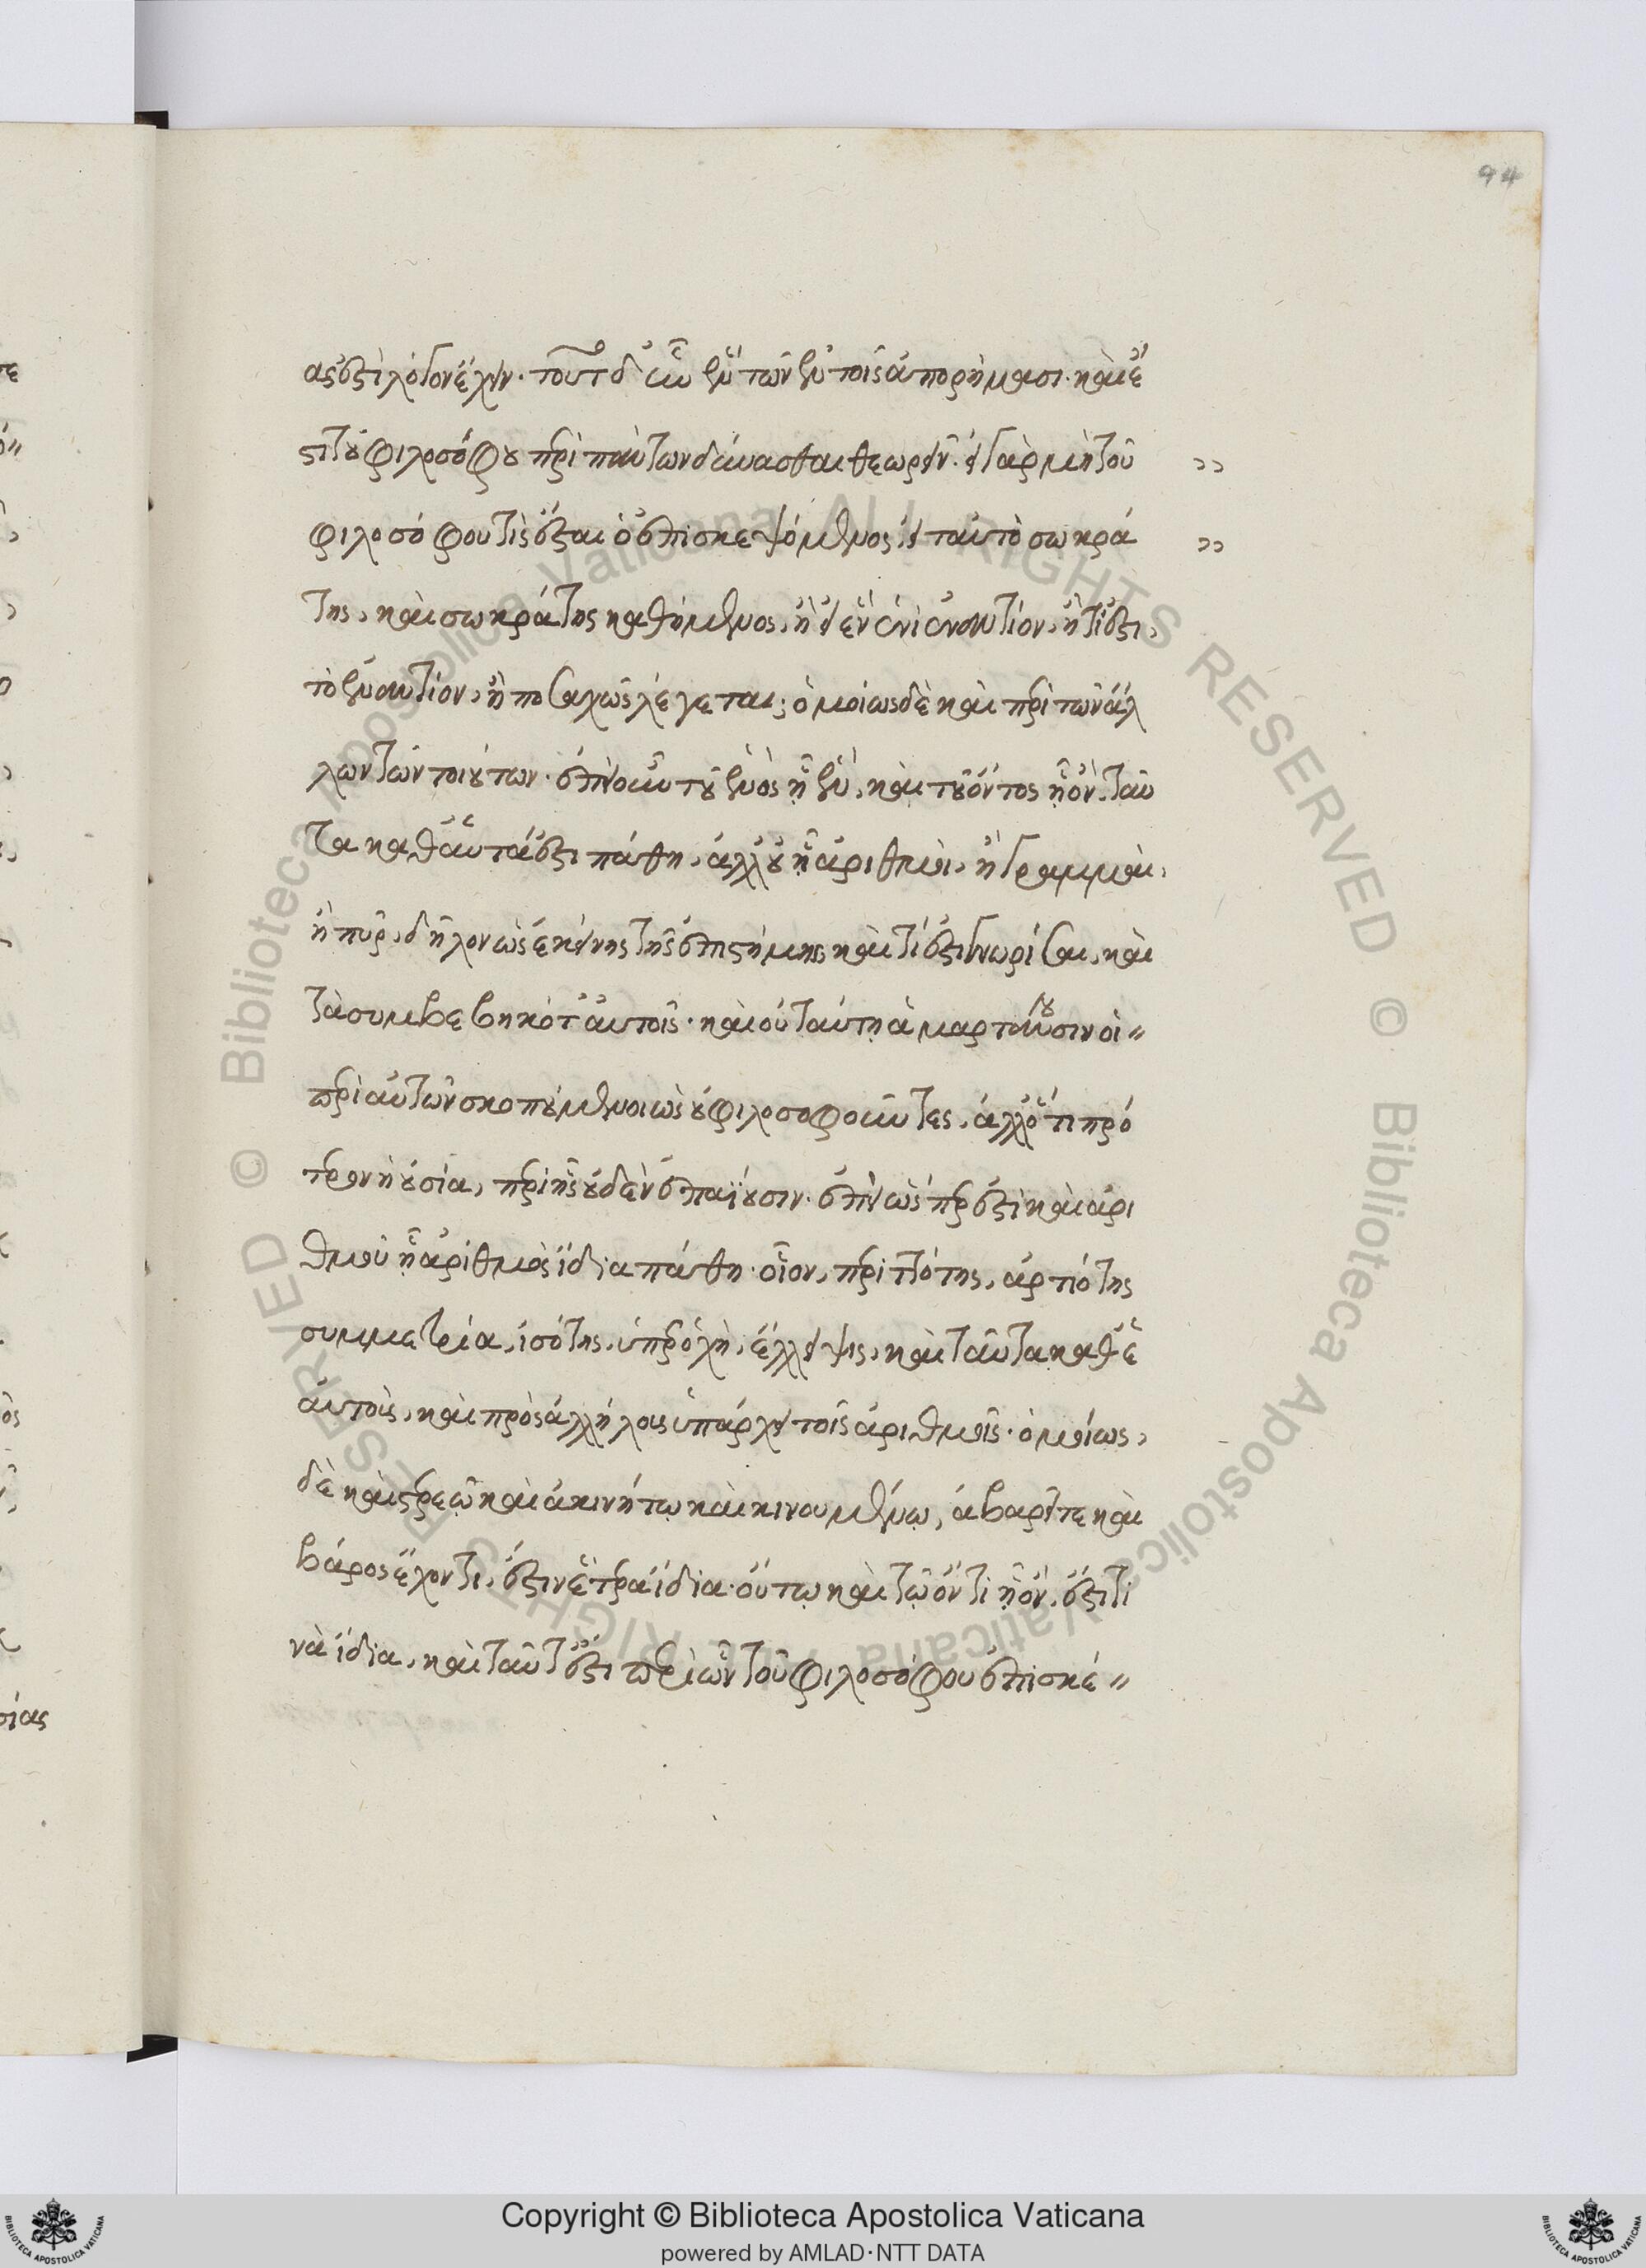 94
ας ἐστὶ λόγον ἔχειν. τοῦτο δ' ἦν ἓν τῶν ἐν τοῖς ἀπορήμασι. καὶ ἔ
στι τοῦ φιλοσόφου περὶ πάντων δύνασθαι θεωρεῖν. εἰ γὰρ μὴ τοῦ
φιλοσόφου τὶς ἔσται ὁ ἐπισκεψόμενος εἰ ταὐτὸ σωκρά
της, καὶ σωκράτης καθήμενος, ἢ εἰ ἓν ἑνὶ ἐναντίον, ἢ τί ἐστι,
τὸ ἐναντίον, ἢ ποσαχῶς λέγεται; ὁμοίως δὲ καὶ περὶ τῶν ἄλ
λων τῶν τοιούτων. ἐπεὶ οὖν τοῦ ἑνὸς ᾗ ἓν, καὶ τοῦ ὄντος ᾗ ὂν, ταῦ
τα καθ' αὑτά ἐστι πάθη, ἀλλ' οὐχ ᾗ ἀριθμοὶ, ἢ γραμμαὶ,
ἢ πῦρ, δῆλον ὡς ἐκείνης τῆς ἐπιστήμης καὶ τί ἐστι γνωρίσαι, καὶ
τὰ συμβεβηκότ' αὐτοῖς. καὶ οὐ ταύτῃ ἁμαρτάνουσιν οἱ
περὶ αὐτῶν σκοπούμενοι ὡς οὐ φιλοσοφοῦντες, ἀλλ' ὅτι πρό
τερον ἡ οὐσία, περὶ ἧς οὐδὲν ἐπαΐουσιν. ἐπεὶ ὥσπερ ἐστὶ καὶ ἀρι
θμοῦ ᾗ ἀριθμὸς ἴδια πάθη. οἷον, περιττότης, ἀρτιότης
συμμετρία, ἰσότης, ὑπεροχὴ, ἔλλειψις, καὶ ταῦτα καθ' ἑ
αυτοὺς, καὶ πρὸς ἀλλήλους ὑπάρχει τοῖς ἀριθμοῖς. ὁμοίως,
δὲ καὶ στερεῷ καὶ ἀκινήτῳ καὶ κινουμένῳ, ἀβαρεῖ τε καὶ
βάρος ἔχοντι, ἔστιν ἕτερα ἴδια. οὕτω καὶ τῷ ὄντι ᾗ ὂν, ἔστι τι
νὰ ἴδια, καὶ ταῦτ' ἐστὶ περὶ ὧν τοῦ φιλοσόφου ἐπισκέ
Copyright © Biblioteca Apostolica Vaticana
powered by AMLAD·NTT DATA